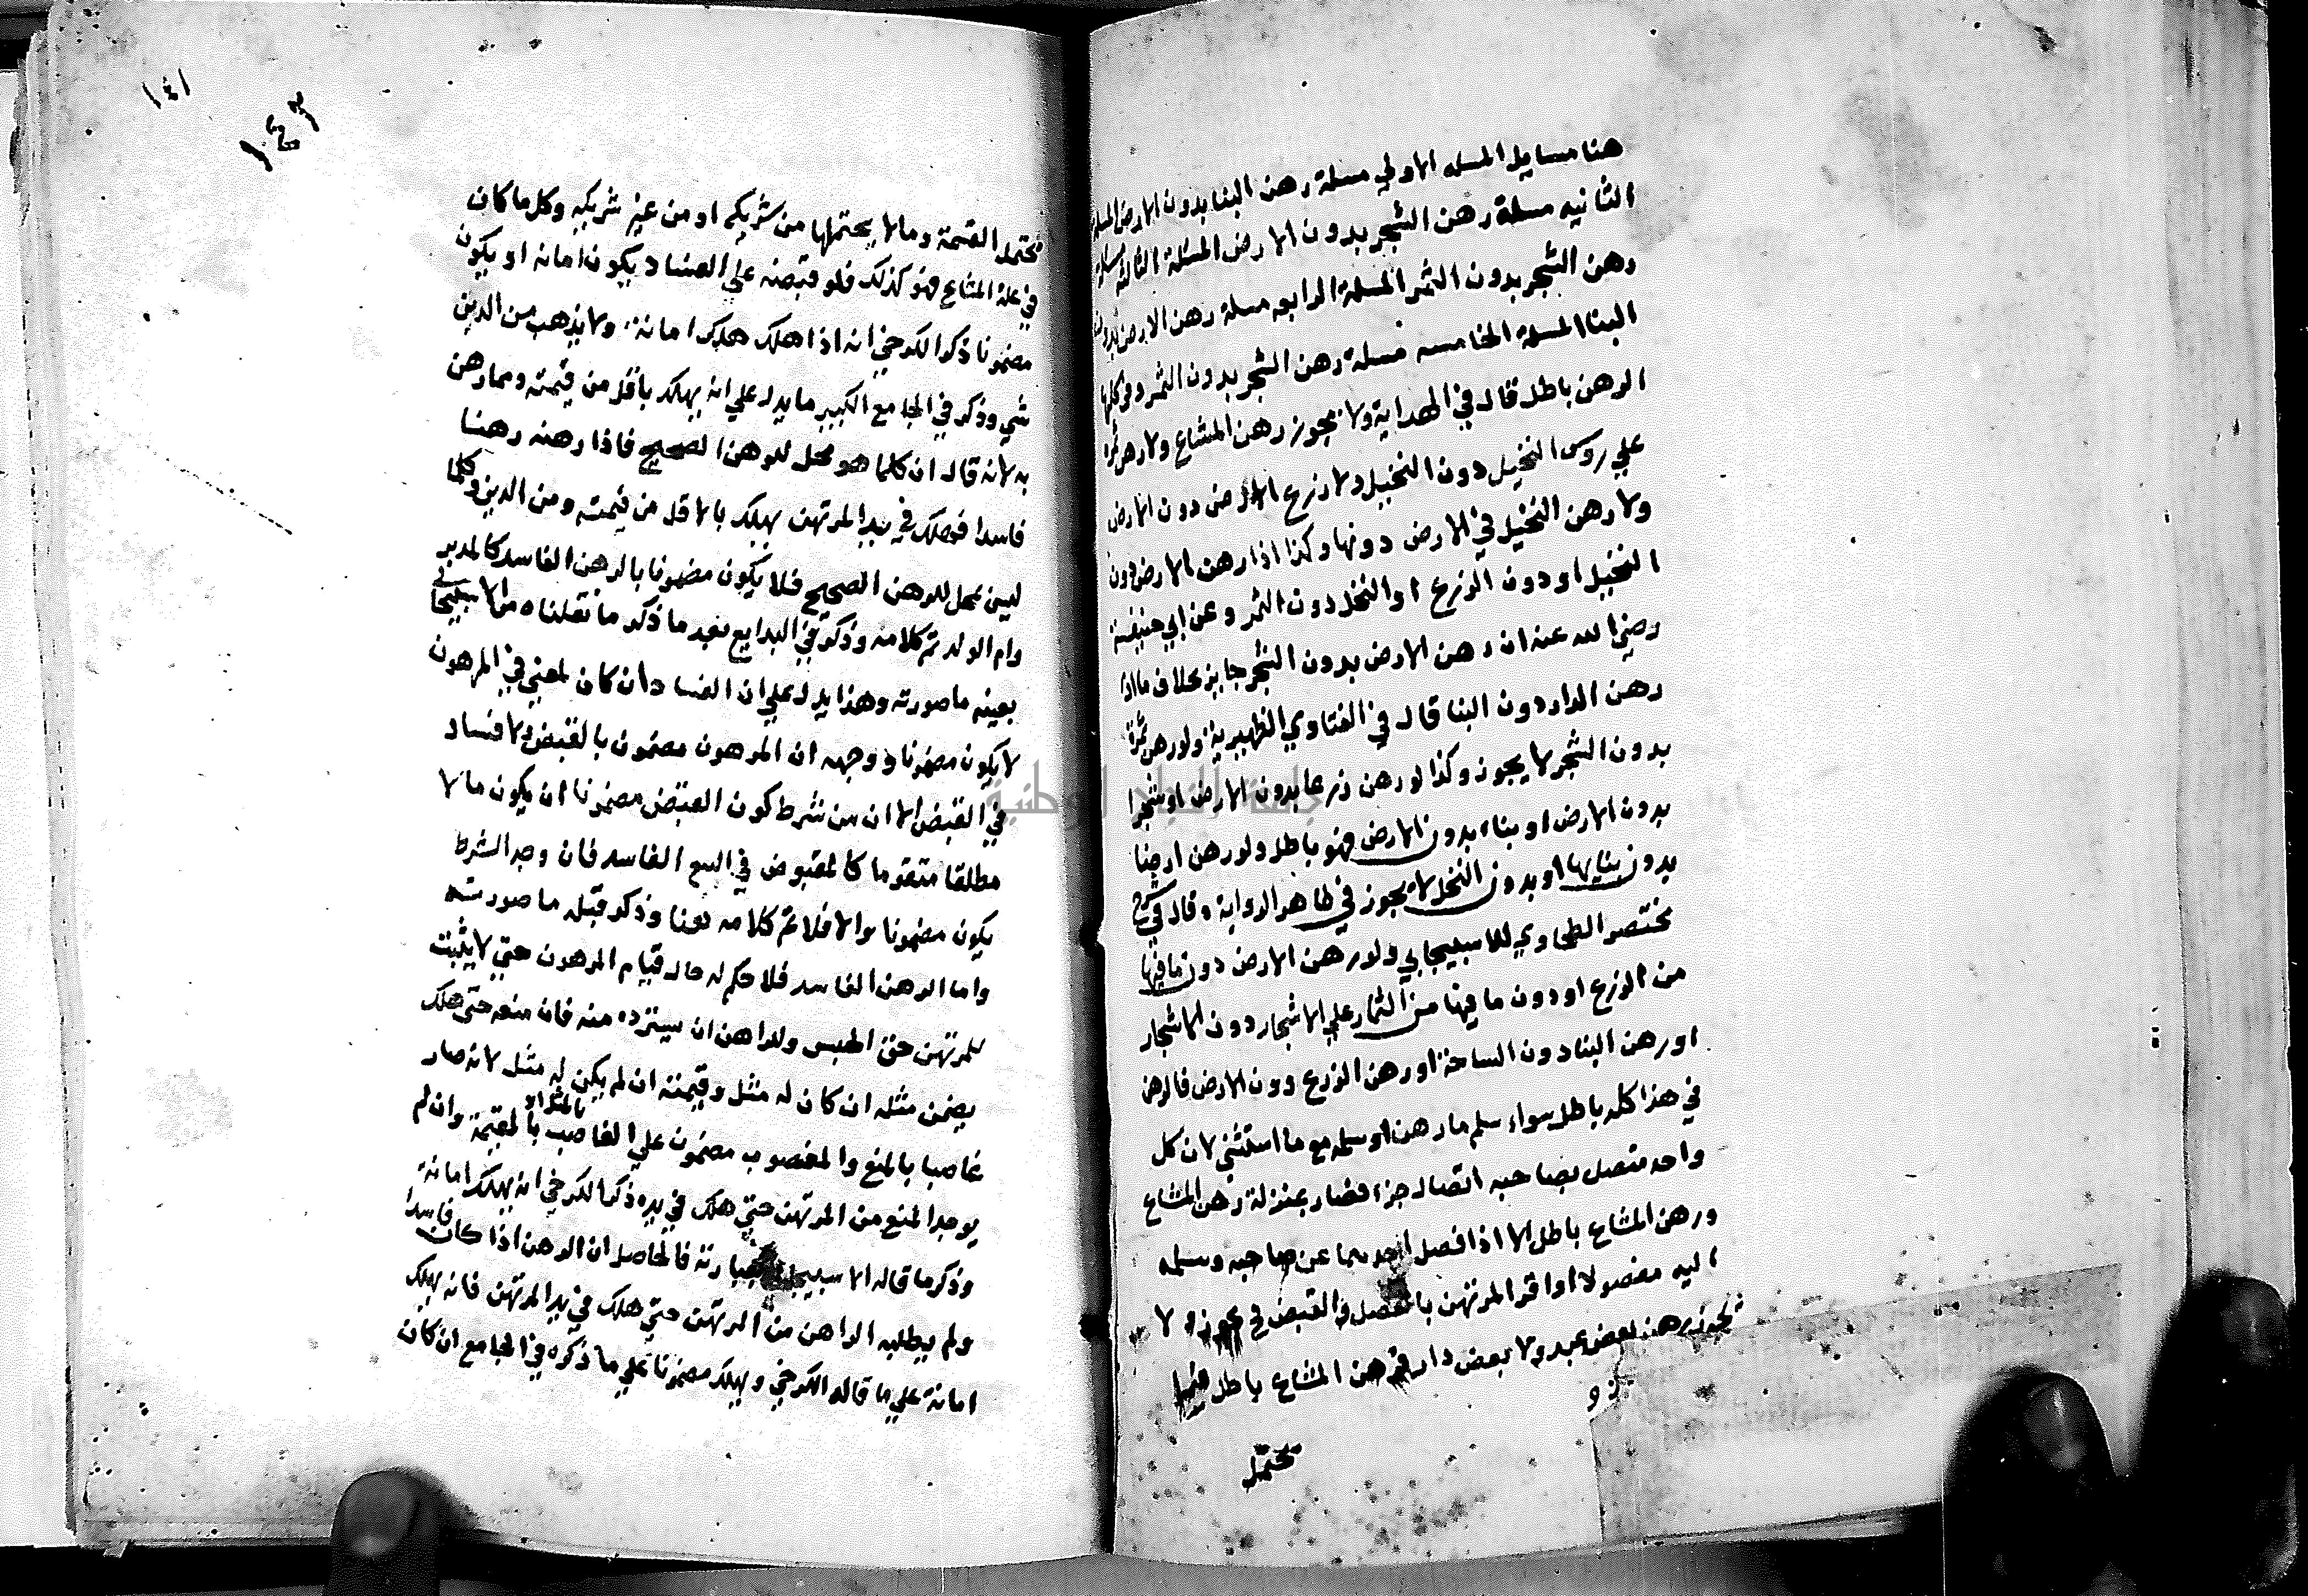 هنا مسايل المسله الاولي مسلة رهن البنا بدون الارض المسلة
الثانيه مسلة رهن الشجر بدون الارض المسئلة الثالثة مسئلة
رهن الشجر بدون الثمر المسلة الرابعه مسلة رهن الارض بدون
البنا المسلة الخامسه مسلة رهن الشجر بدون الثمر وفي كلها
الرهن باطل قال في الهداية ولا يجوز رهن المشاع ولا رهن ثمرة
علي روس النخيل دون النخيل ولا زرع الارض دون الارض
ولا رهن النخيل في الارض دونها وكذا اذا رهن الارض دون
النخيل او دون الزرع او النخل دون الثمر وعن ابي حنيفة
رضي الله عنه ان رهن الارض بدون الشجر جايز بخلاف ما اذا
رهن الدار دون البنا قال في الفتاوي الظهيرية ولو رهن ثمرة
بدون الشجر لا يجوز وكذا لو رهن زرعا بدون الارض او شجرا
بدون الارض او بناء بدون الارض فهو باطل ولو رهن ارضا
بدون بنايها او بدون النخل لا يجوز في ظاهر الرواية وقال في شرح
مختصر الطحاوي للاسبيجابي ولو رهن الارض دون ما فيها
من الزرع او دون ما فيها من الثمار علي الاشجار دون الاشجار
او رهن البنا دون الساحة او رهن الزرع دون الارض فالرهن
في هذا كله باطل سواء سلم ما رهن او سلمه مع ما استثني لان كل
واحد متصل بصاحبه اتصال جزء فصار بمنزلة رهن المشاع
ورهن المشاع باطل الا اذا فصل احدهما عن صاحبه وسلمه
اليه مفصولا او اقر المرتهن بالفصل والقبض في يجوز ولا
يجوز رهن بعض عبد ولا بعض دار فرهن المشاع باطل فيما
يحتمل
١٤١
١٤٣
يحتمل القسمة وما لا يحتملها من شريكه او من غير شريكه وكل ما كان
في علة المشاع فهو كذلك فلو قبضه علي الفساد يكون امانه او يكون
مضمونا ذكر الكرخي انه اذا هلك هلك امانة ولا يذهب من الدين
شي وذكر في الجامع الكبير ما يدل علي انه يهلك باقل من قيمته ومما رهن
به لانه قال ان كلما هو محل للرهن الصحيح فاذا رهنه رهنا
فاسدا فهلك في يد المرتهن يهلك بالاقل من قيمته ومن الدين وكلما
ليس بمحل للرهن الصحيح فلا يكون مضمونا بالرهن الفاسد كالمدبر
وام الولد تم كلامه وذكر في البدايع بعد ما ذكر ما نقلناه من الاسبيجابي
بعينه ما صورته وهذا يدل علي ان الفساد ان كان لمعني في المرهون
لا يكون مضمونا ووجهه ان المرهون مضمون بالقبض ولا فساد
في القبض الا ان من شرط كون القبض مضمونا ان يكون مالا
مطلقا متقوما كالمقبوض في البيع الفاسد فان وجد الشرط
يكون مضمونا والا فلا تم كلامه هونا وذكر قبله ما صورته
واما الرهن الفاسد فلا حكم له حال قيام المرهون حتي لا يثبت
للمرتهن حق الحبس وللراهن ان يسترده منه فان منعه حتي هلك
يضمن مثله ان كان له مثل وقيمته ان لم يكن له مثل لانه صار
غاصبا بالمنع والمغصوب مضمون علي الغاصب بالمثل او بالقيمة وان لم
يوجد المنع من المرتهن حتي هلك في يده ذكر الكرخي انه يهلك امانة
وذكر ما قاله الاسبيجابي بعبارته فالحاصل ان الرهن اذا كان فاسدا
ولم يطلبه الراهن من المرتهن حتي هلك في يد المرتهن فانه يهلك
امانة علي ما قاله الكرخي ويهلك مضمونا علي ما ذكره في الجامع ان كان